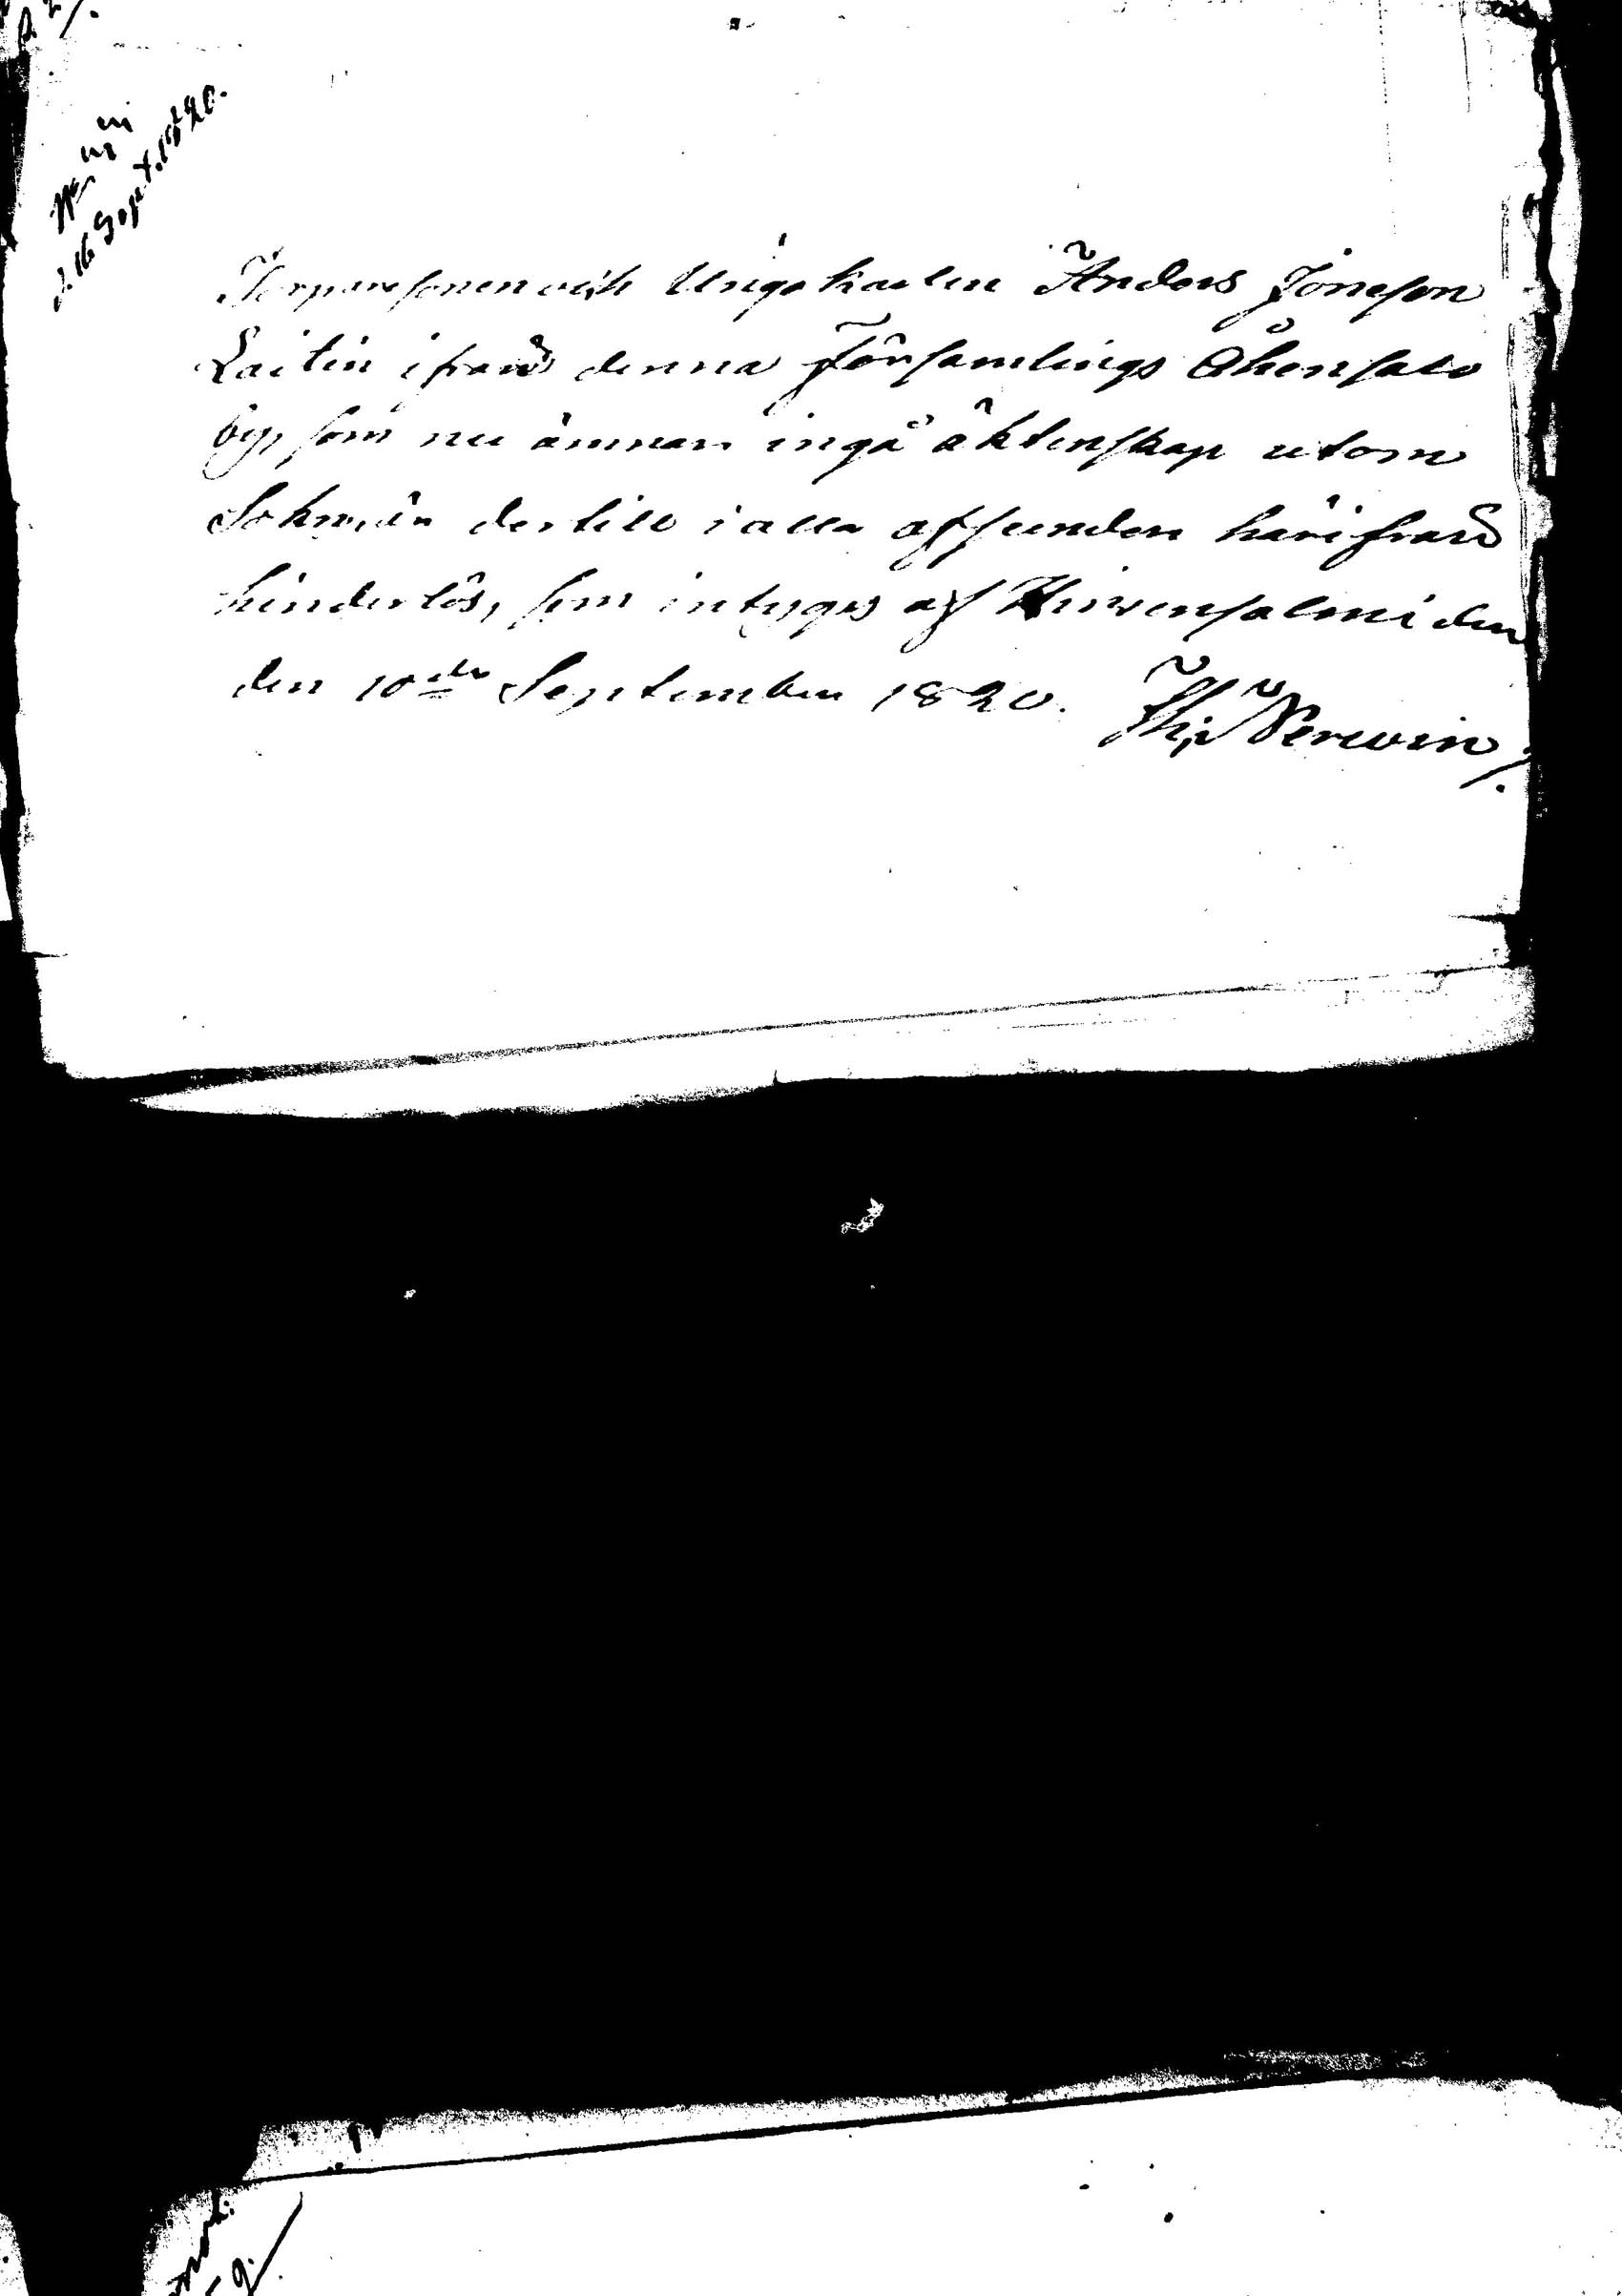 d. 16 Sept. 1820.
Torparesonen och Ungekarlen Anders Jönsson
Laitin ifrån denna Församlings Ahensalo
by, som nu ämnar ingå äktenskap utom
Sokn, är dertill i alla afseenden härifrån
hinderlös, som intygas af Hirvensalmi den
den 10de September 1820.